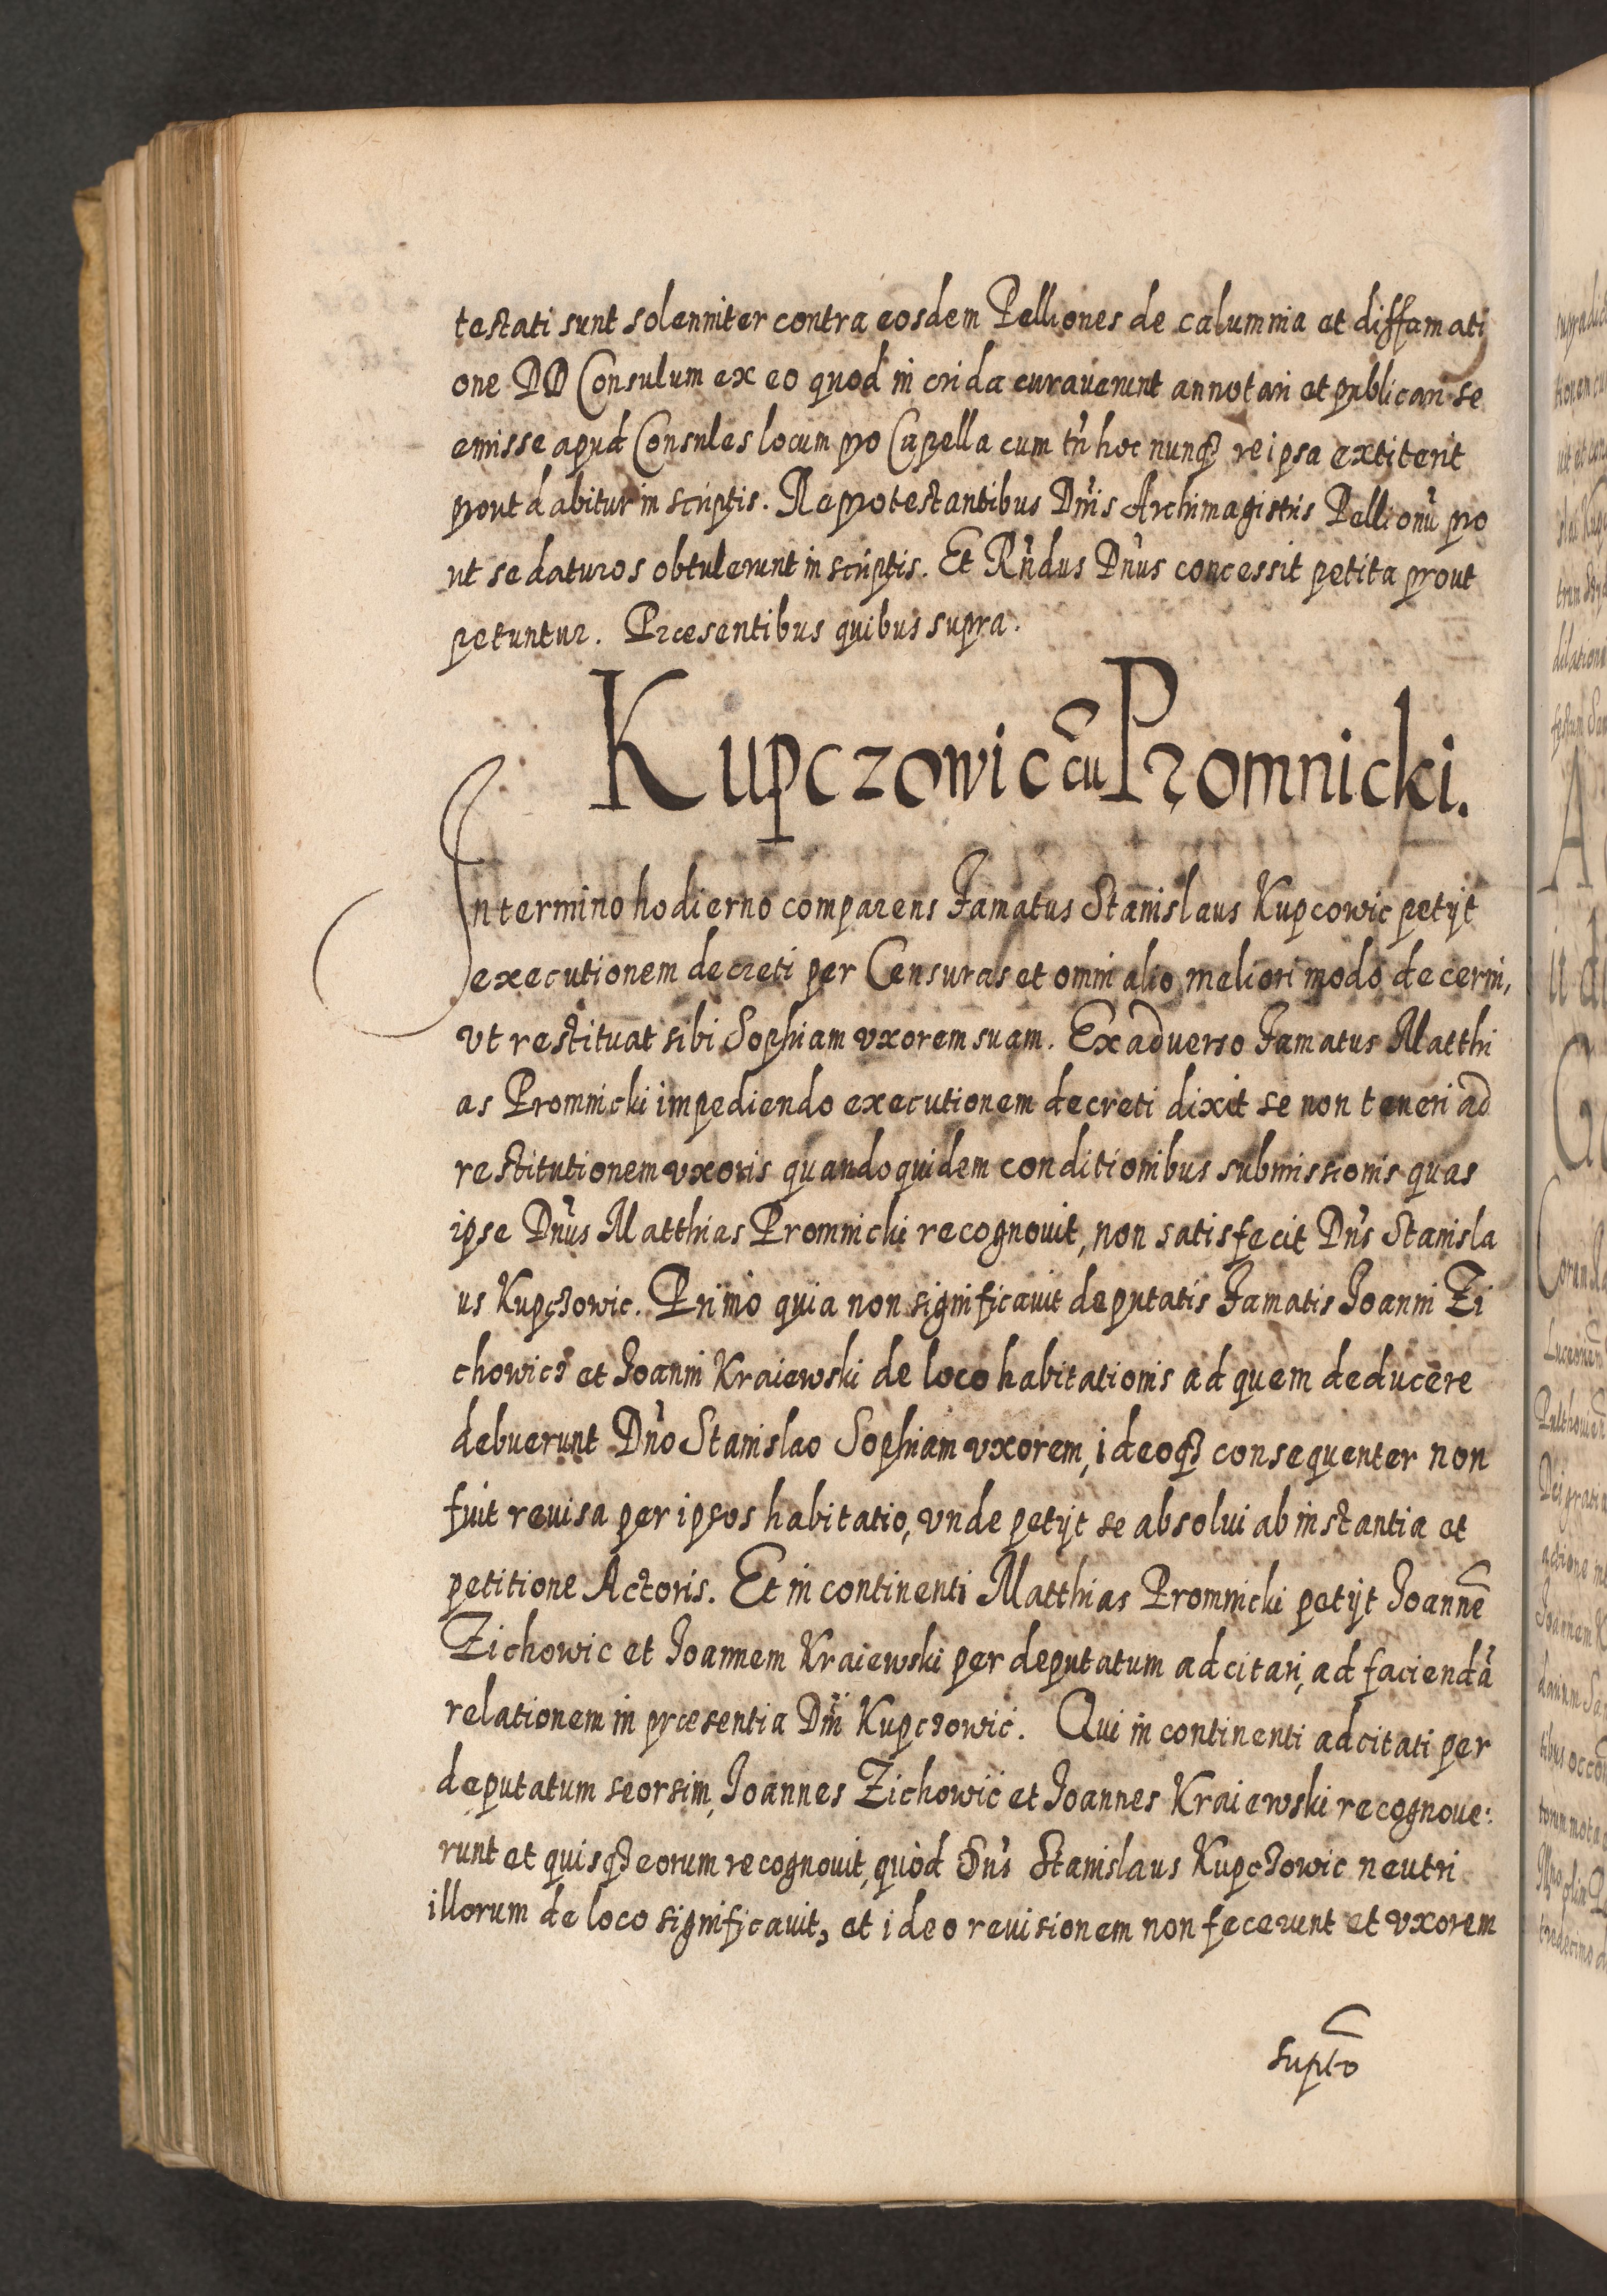 testati sunt solenniter contra eosdem Pelliones de calumnia et diffamati
one DD Consulum ex eo quod in crida curaverunt annotari et publicari se
emisse apud Consules locum pro Capella cum tñ hoc nunqȝ reipsa extiterit
prout dabitur in scriptis. Reprotestantibus Dñis Archimagistris Pellionũ pro
ut se daturos obtulerunt in scriptis. Et Rñdus Dñus concessit petita prout
petuntur. Præsentibus quibus supra.
Kupczowic cũ Promnicki.
In termino hodierno comparens Famatus Stanislaus Kupcowic petÿt
executionem decreti per Censuras et omni alio meliori modo decerni,
vt restituat sibi Sophiam vxorem suam. Ex adverso Famatus Matthi
as Promnicki impediendo executionem decreti dixit se non teneri ad
restitutionem vxoris quandoquidem conditionibus submissionis quas
ipse Dñus Matthias Promnicki recognouit, non satisfecit Dñs Stanisla
us Kupcȝowic. Primò quia non significauit deputatis Famatis Joanni Zi
chowicȝ et Joanni Kraiewski de loco habitationis ad quem deducere
debuerunt Dño Stanislao Sophiam vxorem, ideoqȝ consequenter non
fuit reuisa per ipsos habitatio, vnde petÿt se absolui ab instantia et
petitione Actoris. Et in continenti Matthias Promnicki petÿt Joannẽ
Zichowic et Joannem Kraiewski per deputatum adcitari, ad faciendã
relationem in præsentia Dñi Kupcȝowic. Qui in continenti adcitati per
deputatum seorsim, Joannes Zichowic et Joannes Kraiewski recognoue:
runt et quisqȝ eorum recognouit, quòd Dñs Stanislaus Kupcȝowic neutri
illorum de loco significauit, et ideo reuisionem non fecerunt et vxorem
suptõ